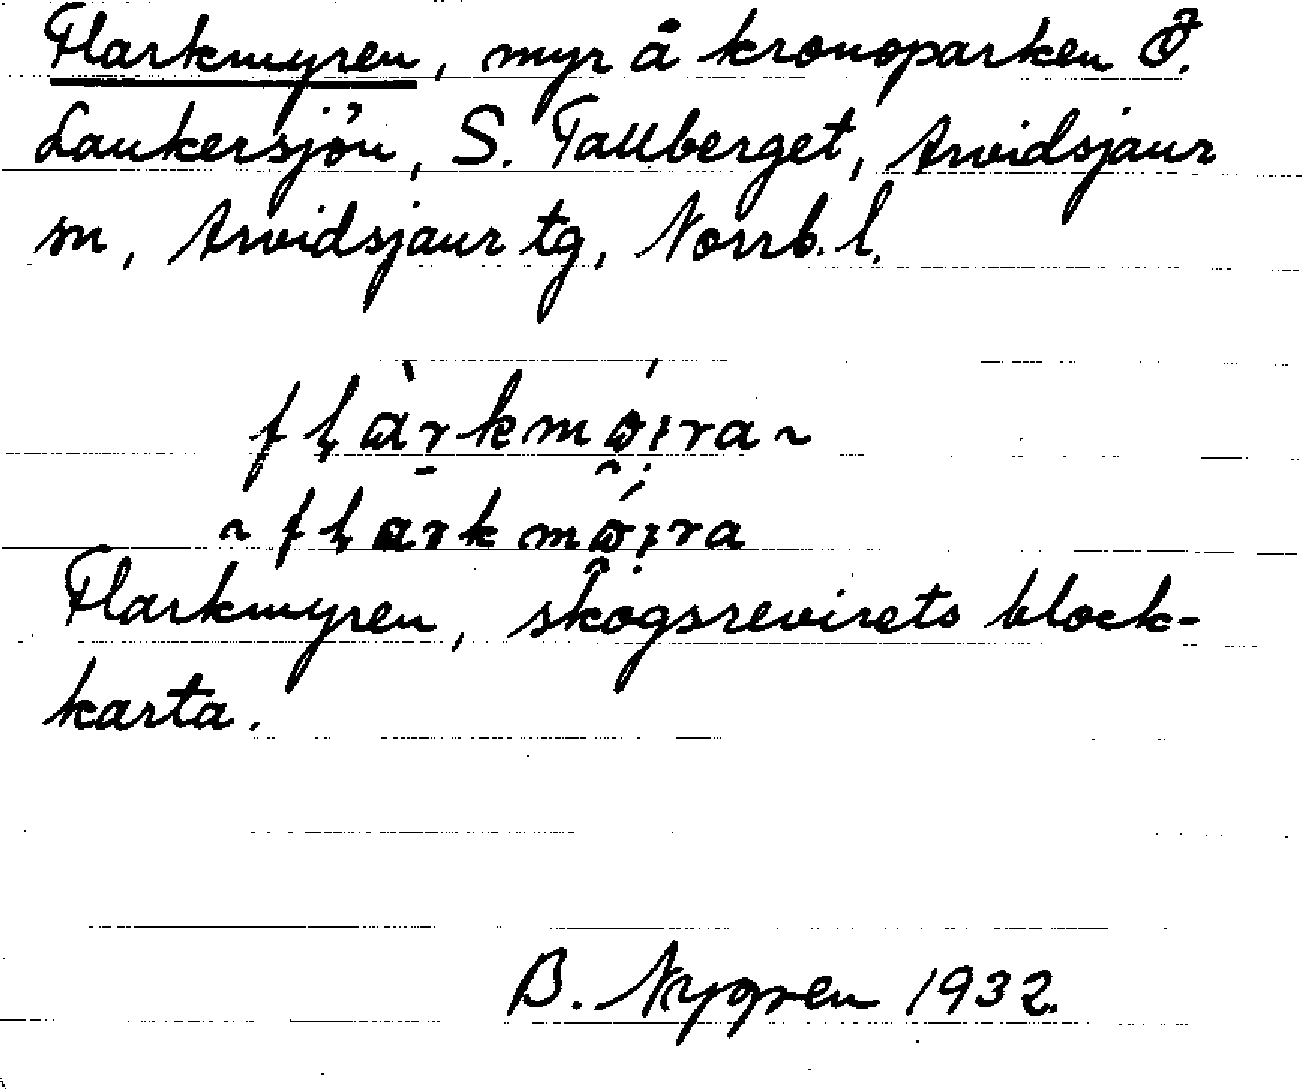 Flarkmyren, myr å kronoparken Ö.
Laukersjön, S. Tallberget, Arvidsjaur
sn, Arvidsjaur tg, Norrb. l.
Flarkmyren, skogsrevirets block-
karta.
B. Nygren 1932.